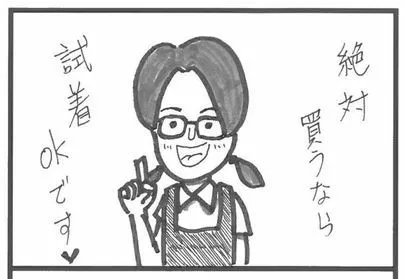 絶対
買うなら
試着
OKです♥